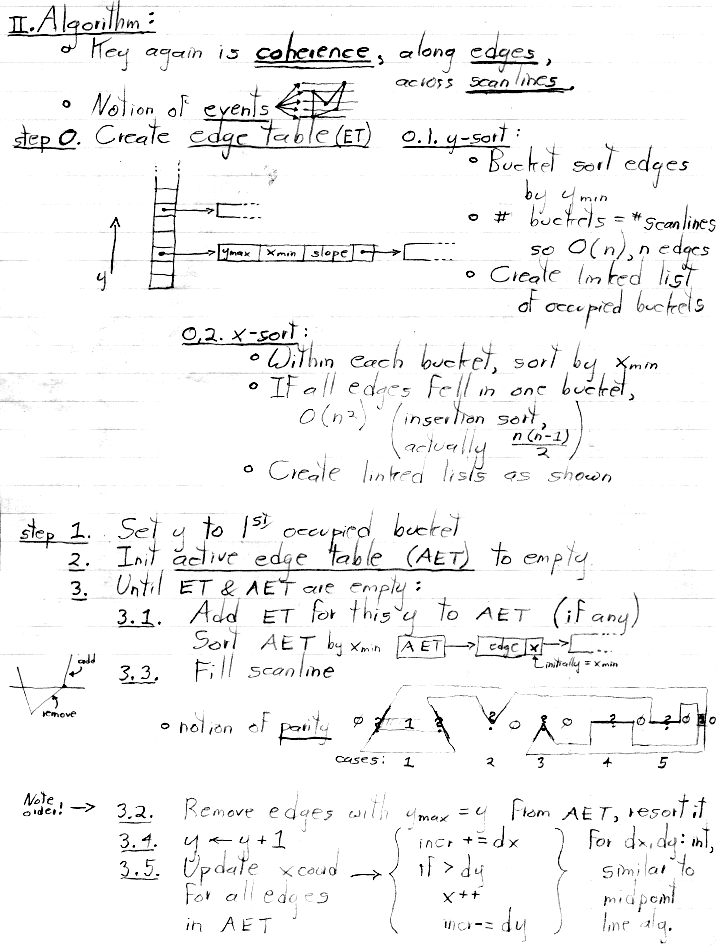 II. Algorithm:
° Key again is coherence, along edges,
across scanlines.
° Notion of events
step 0. Create edge table (ET)
0.1. y-sort:
° Bucket sort edges
by ymin
° # buckets = # scanlines
so O(n), n edges
° Create linked list
of occupied buckets
y
ymax xmin slope
0.2. x-sort:
° Within each bucket, sort by xmin
° If all edges fell in one bucket,
O(n²) (insertion sort,
actually n(n-1)/2)
° Create linked lists as shown
step 1. Set y to 1st occupied bucket
2. Init active edge table (AET) to empty
3. Until ET & AET are empty:
3.1. Add ET for this y to AET (if any)
Sort AET by xmin AET → edge x →
initially = xmin
3.3. Fill scanline
add
remove
° notion of parity 0 ? 1 ? ? 0 ? 0 ? 0 ? 0 0
cases: 1 2 3 4 5
Note order! → 3.2. Remove edges with ymax = y from AET, resort it
3.4. y ← y + 1
3.5. Update x coord →
for all edges
in AET
incr += dx
if > dy
x++
incr -= dy
For dx, dy: int,
similar to
midpoint
line alg.